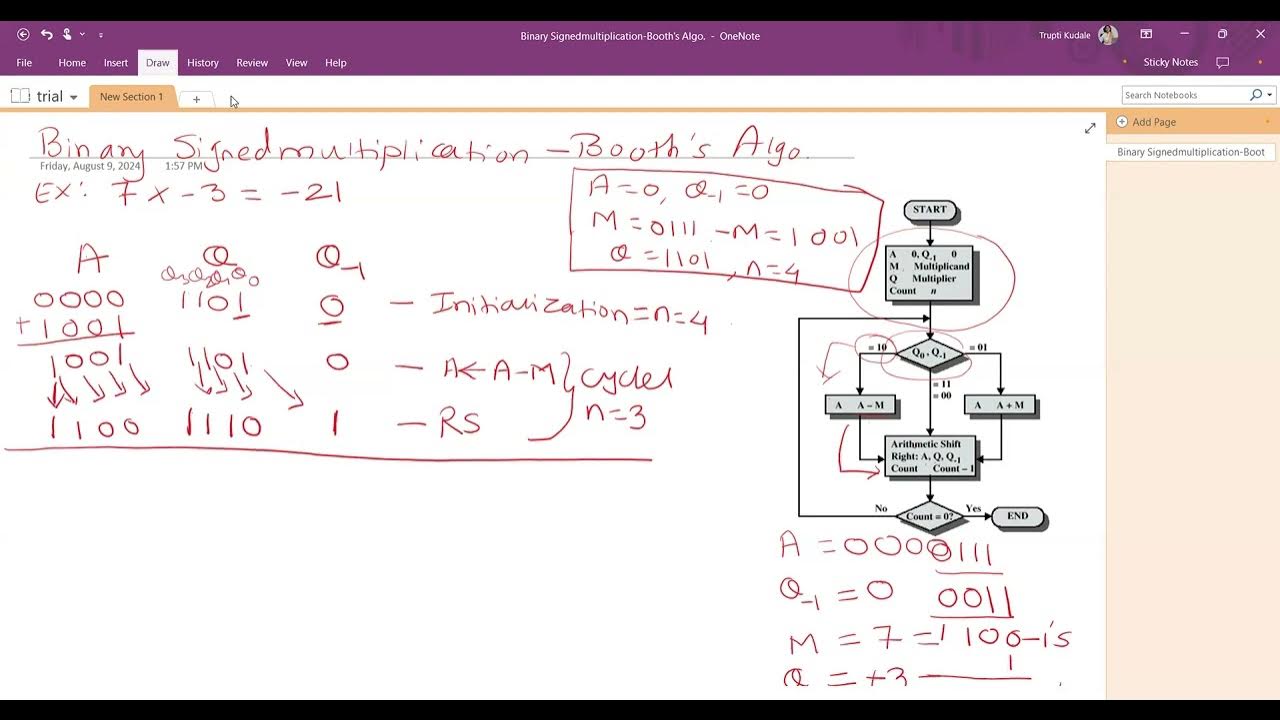 Binary Signedmultiplication-Booth's Algo. - OneNote
Trupti Kudale
File Home Insert Draw History Review View Help
Sticky Notes
trial
New Section 1
+
Search Notebooks
Add Page
Binary Signedmultiplication-Boot
Binary Signedmultiplication - Booth's Algo.
Friday, August 9, 2024 1:57 PM
EX: 7 x -3 = -21
A=0, Q-1=0
M=0111 -M=1001
Q=1101, n=4
A Q Q-1
Q3Q2Q1Q0
0000 1101 0 - Initialization=n=4
+1001
1001 1101 0 - A←A-M } cycle1
1100 1110 1 - RS n=3
START
A 0, Q-1 0
M Multiplicand
Q Multiplier
Count n
= 10 Q0, Q-1 = 01
= 11
= 00
A A – M
A A + M
Arithmetic Shift
Right: A, Q, Q-1
Count Count – 1
No Count = 0? Yes
END
A = 0000 0111
Q-1 = 0 0011
M = 7 = 1100-1's
1
Q = +3